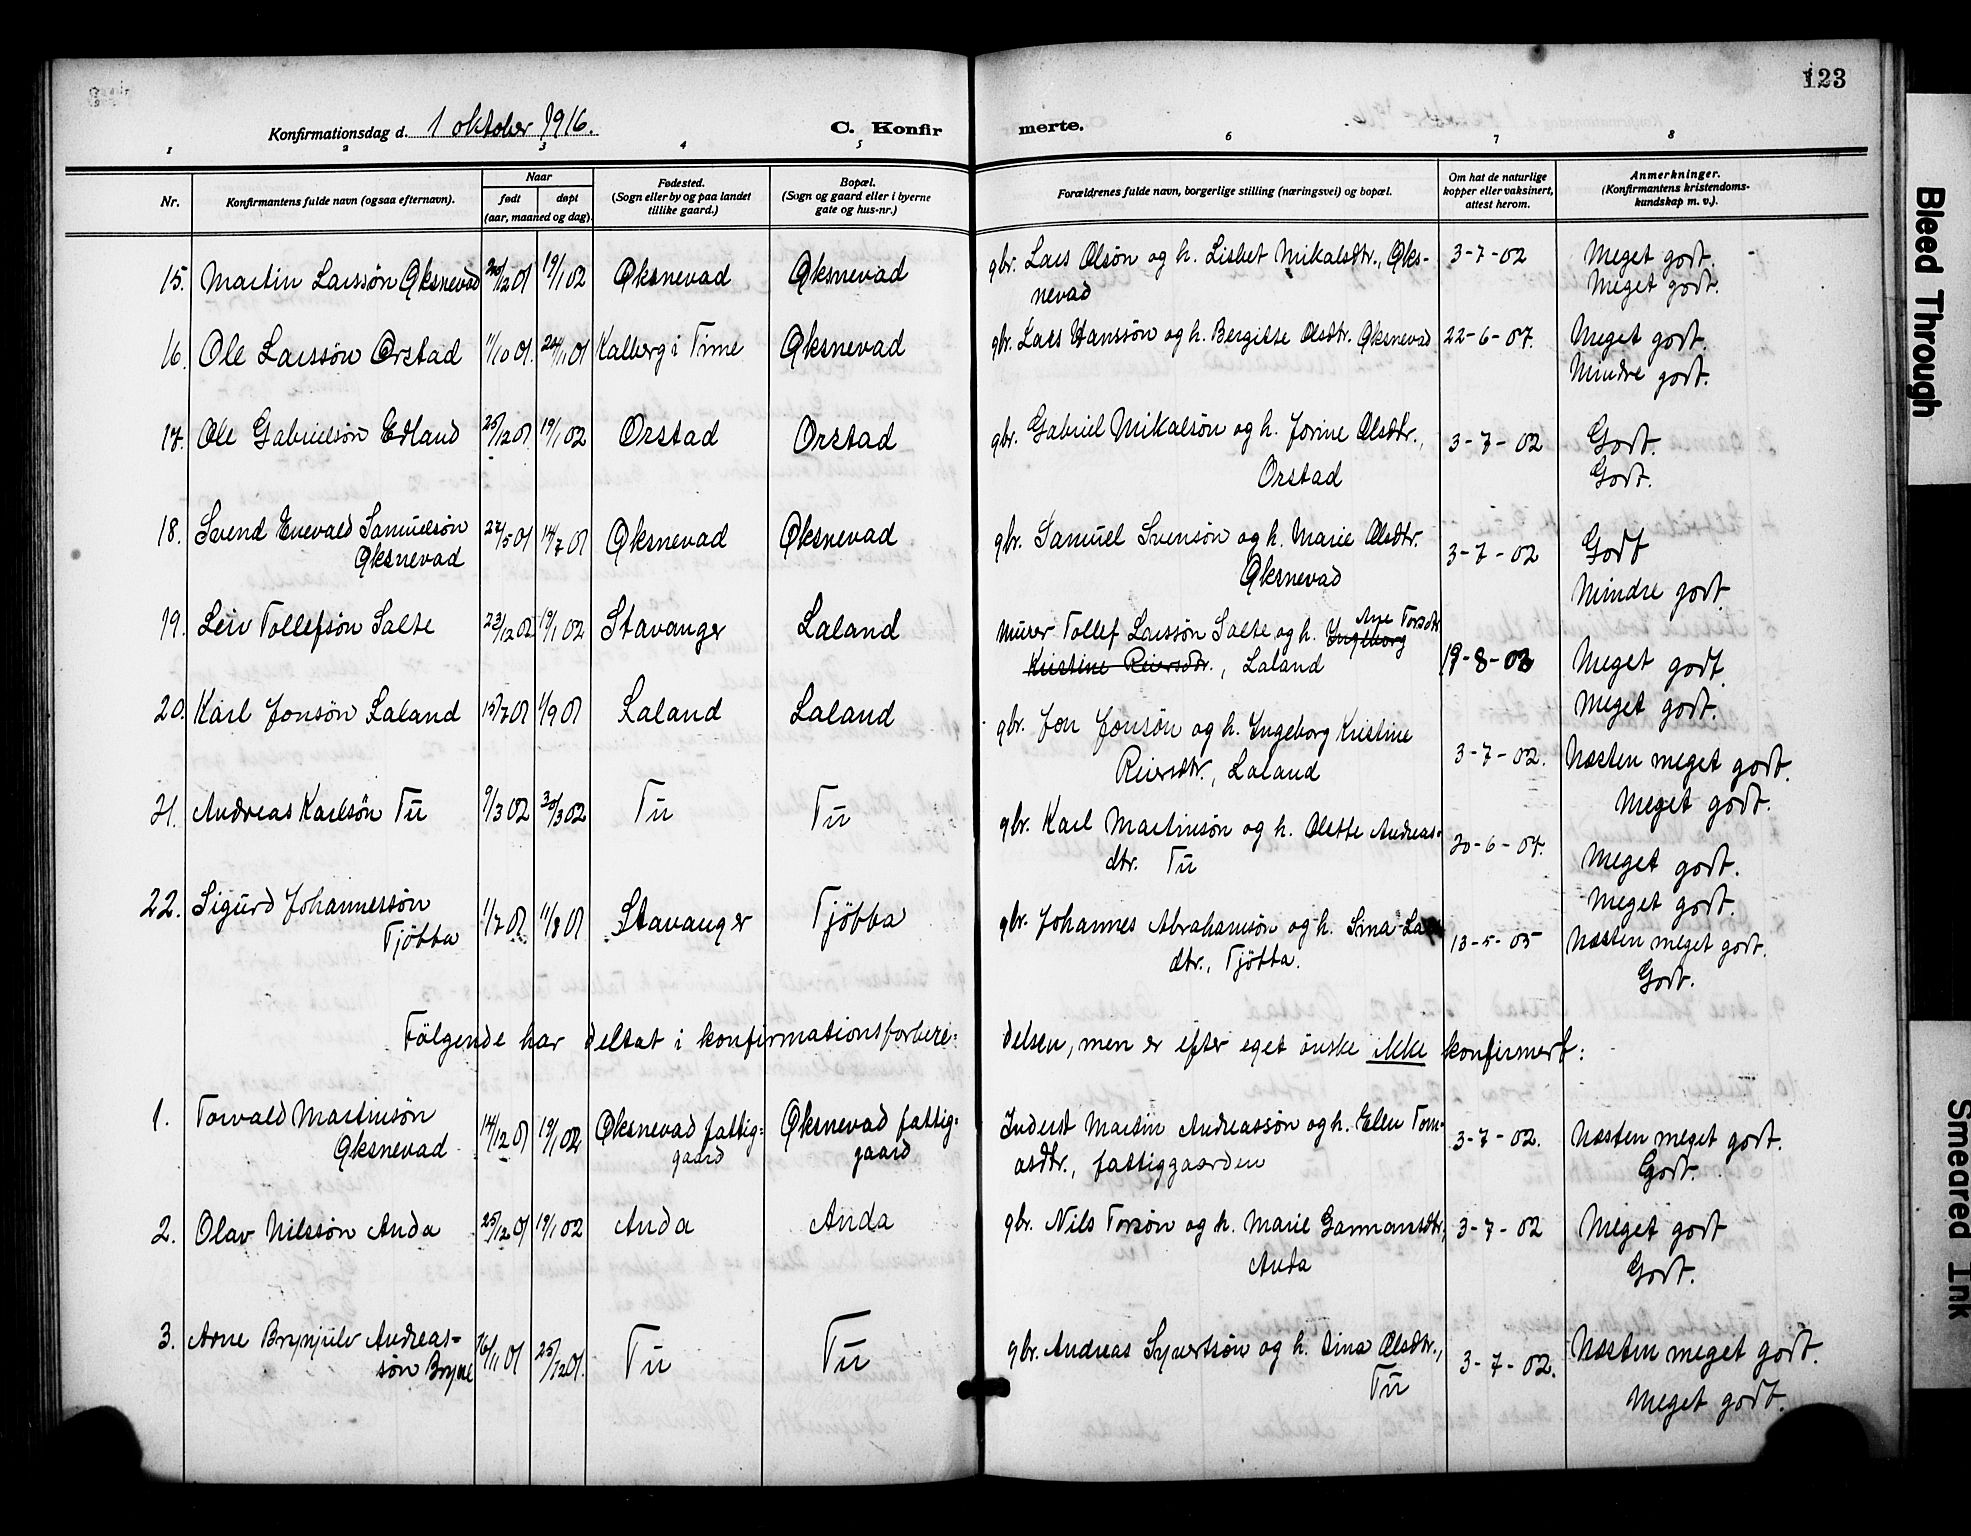 123
Konfirmationsdag d. 1 oktober 1916.
C. Konfirmerte.
1 2 3 4 5 6 7 8
Nr.
Konfirmantens fulde navn (ogsaa efternavn).
Naar
født
døpt
(aar, maaned og dag).
Fødested.
(Sogn eller by og paa landet
tillike gaard.)
Bopæl.
(Sogn og gaard eller i byerne
gate og hus-nr.)
Forældrenes fulde navn, borgerlige stilling (næringsvei) og bopæl.
Om hat de naturlige
kopper eller vaksinert,
attest herom.
Anmerkninger.
(Konfirmantens kristendoms-
kundskap m. v.).
15. Martin Larssön Øksnevad 20/12 01 19/1 02 Øksnevad Øksnevad gbr. Lars Olsön og h. Lisbet Mikalsdtr., Øks- 3-7-02 Meget godt.
nevad Meget godt.
16. Ole Larssön Orstad 11/10 01. 24/11 01 Kalberg i Time Øksnevad gbr. Lars Hanssön og h. Bergitte Olsdtr. Øksnevad 22-6-07. Meget godt.
Mindre godt.
17. Ole Gabrielsön Edland 25/12 01 19/1 02 Orstad Orstad gbr. Gabriel Mikalsön og h. Jorine Olsdtr., 3-7-02 Godt.
Orstad Godt.
18. Svend Enevald Samuelsön 27/5 01 14/7 01 Øksnevad Øksnevad gbr. Samuel Svensön og h. Marie Olsdtr. 3-7-02 Godt
Øksnevad Øksnevad Mindre godt.
19. Leiv Tollefsön Salte 23/12 02 19/1 02 Stavanger Laland Murer Tollef Larssön Salte og h. Ingeborg Ane Torsdtr
Kristine Reiersdtr., Laland 19-8-02 Meget godt.
Meget godt.
20. Karl Jonsön Laland 15/7 01 1/9 01 Laland Laland gbr. Jon Jonsön og h. Ingeborg Kristine
Reiersdtr., Laland 3-7-02. Næsten meget godt.
Meget godt.
21. Andreas Karlsön Tu 9/3 02 30/3 02 Tu Tu gbr. Karl Martinsön og h. Olette Andreas-
dtr. Tu 20-6-07. Meget godt.
Meget godt.
22. Sigurd Johannessön 1/7 01 11/8 01 Stavanger Tjötta gbr. Johannes Abrahamsön og h. Sina
Tjötta dtr., Tjötta. 13-5-05 Næsten meget godt.
Godt.
Fölgende har deltat i konfirmationsforbere-delsen, men er efter eget önske ikke konfirmert:
1. Torvald Martinsön 14/12 01 19/1 02 Øksnevad fattig- Øksnevad fattig- Inderst Martin Andreassön og h. Ellen Tom- 3-7-02. Næsten meget godt.
Øksnevad gaard gaard asdtr., fattiggaarden Godt.
2. Olav Nilssön Anda 25/12 01 19/1 02 Anda Anda gbr. Nils Torsön og h. Marie Garmansdtr., 3-7-02 Meget godt
Anda Godt.
3. Arne Brynjulv Andreas- 16/11 01 25/12 01. Tu Tu gbr. Andreas Syvertsön og h. Sina Olsdtr., 3-7-02. Næsten meget godt.
sön Bryne Tu Meget godt.
Bleed Through
Smeared Ink